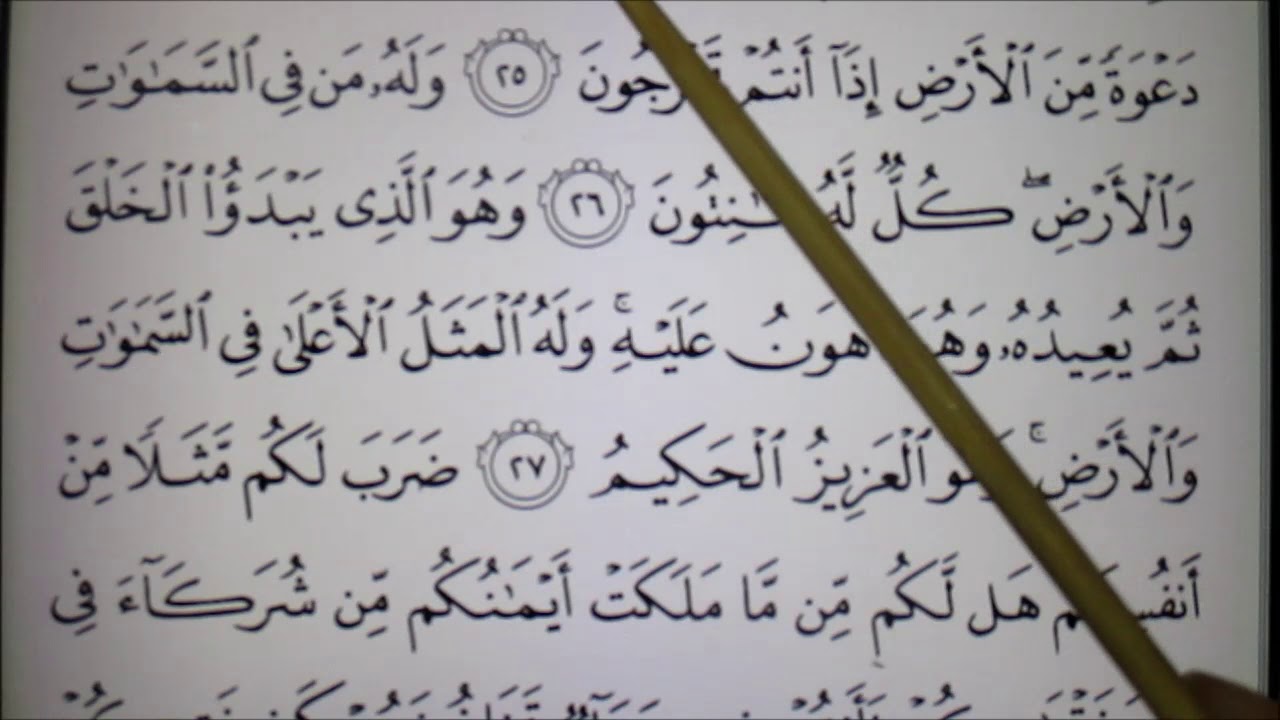 دَعْوَةً مِّنَ ٱلْأَرْضِ إِذَآ أَنتُمْ تَخْرُجُونَ ٢٥ وَلَهُۥ مَن فِى ٱلسَّمَٰوَٰتِ
وَٱلْأَرْضِ ۖ كُلٌّ لَّهُۥ قَٰنِتُونَ ٢٦ وَهُوَ ٱلَّذِى يَبْدَؤُا۟ ٱلْخَلْقَ
ثُمَّ يُعِيدُهُۥ وَهُوَ أَهْوَنُ عَلَيْهِ ۚ وَلَهُ ٱلْمَثَلُ ٱلْأَعْلَىٰ فِى ٱلسَّمَٰوَٰتِ
وَٱلْأَرْضِ ۚ وَهُوَ ٱلْعَزِيزُ ٱلْحَكِيمُ ٢٧ ضَرَبَ لَكُم مَّثَلًا مِّنْ
أَنفُسِكُمْ هَل لَّكُم مِّن مَّا مَلَكَتْ أَيْمَٰنُكُم مِّن شُرَكَآءَ فِى